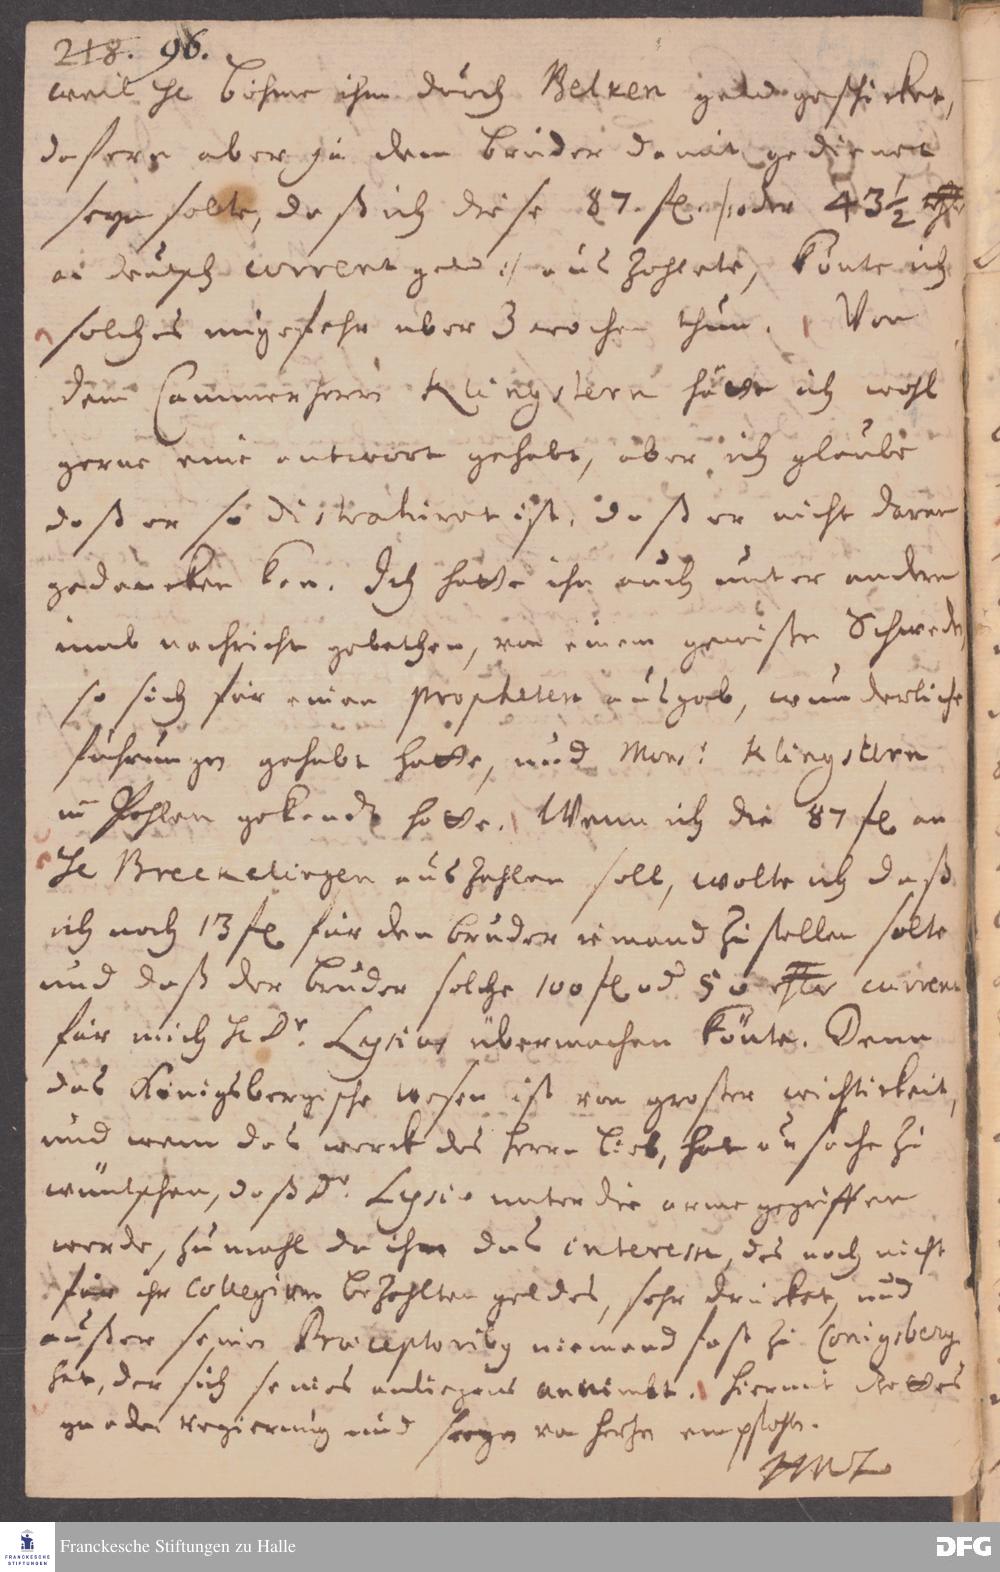 218. 96.
weil H. Böhme ihm durch Belken geld geschicket,
dafern aber ja dem Bruder damit gedienet
seyn solte, daß ich diese 87. fl. /:oder 43½ rthlr
an deutsch current geld :/ auszahlete, könte ich
solches ungefehr uber 3 wochen thun. Von
dem Cammerherrn Klingstern hätte ich wohl
gerne eine antwort gehabt, aber ich glaube
daß er so distrahiret ist, daß er nicht daran
gedencken kan. Ich hatte ihn auch unter andern
umb nachricht gebethen, von einem gewißen Schweden,
so sich für einen propheten ausgab, wunderliche
führungen gehabt hatte, und Mons: Klingstern
in Pohlen gekandt hatte. Wenn ich die 87 fl an
H. Breckelingen auszahlen soll, wolte ich daß
ich noch 13 fl für den bruder iemand zustellen solte
und daß der bruder solche 100 fl od 50 rthlr current
für mich H. Dr. Lysius übermachen könte. Denn
das Königsbergische wesen ist von großer wichtikeit,
und wem das werck des Herrn lieb, hat ursache zu
wüntschen, daß Dr. Lysio unter die arme gegriffen
werde, zumahl da ihm das interesse, des noch nicht
für ihr collegium bezahlten geldes, sehr drücket, und
außer seinen Praeceptoribus niemand fast zu Conigsberg
hat, der sich seines anliegens annimbt. Hiermit Gottes
gnaden regierung und seegen von hertzen empfohlen.